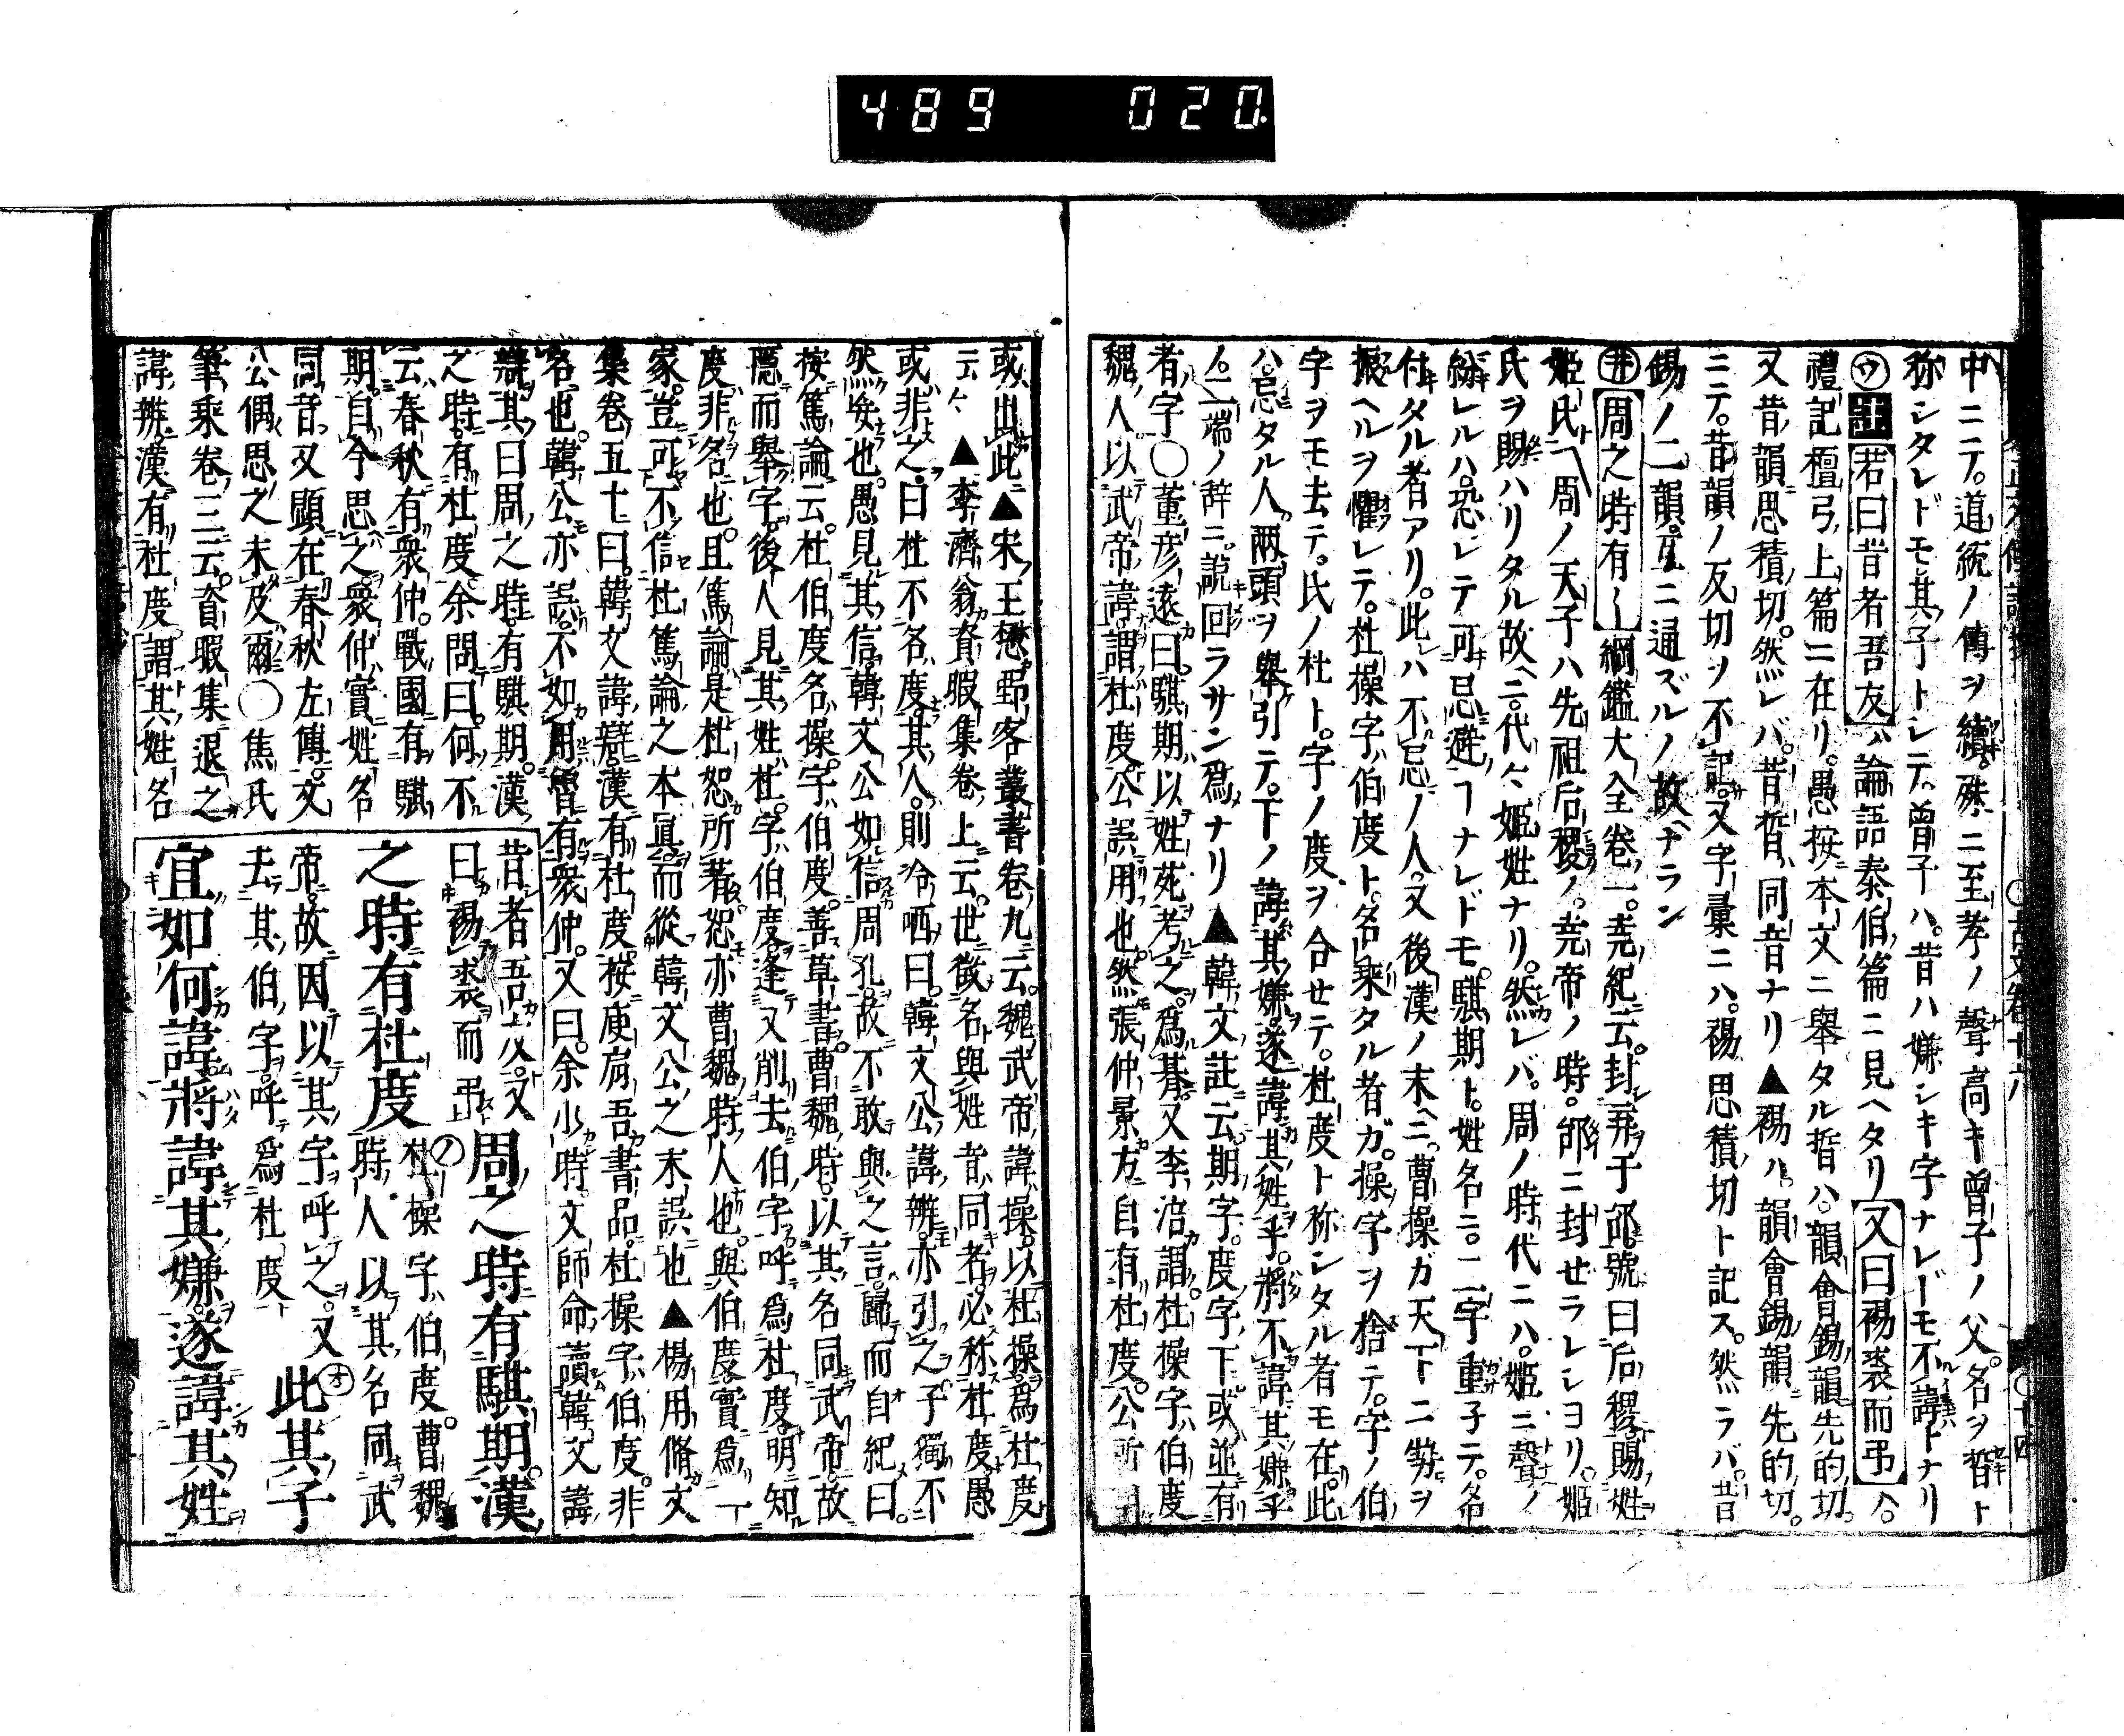 489 020
中ニテ。道統ノ傳ヲ續。殊ニ至孝ノ聲高キ曾子ノ父。名ヲ晳ト
称シタレドモ其子トシテ。曾子ハ。昔ハ嫌シキ字ナレドモ不諱トナリ
ウ註若曰昔者吾友ハ論語泰伯篇ニ見ヘタリ又曰裼裘而弔ハ
禮記檀弓上篇ニ在リ。愚按本文ニ舉タル晳ハ。韻會錫韻先的切。
又昔韻思積切。然レバ。昔晳同音ナリ▲裼ハ。韻會錫韻先的切。
ニテ。昔韻ノ反切ヲ不記。又字彙ニハ。裼思積切ト記ス。然ラバ。昔
錫ノ二韻。互ニ通ズルノ故ナラン
井周之時有〵綱鑑大全卷一。堯紀云。封弃于邰號曰后稷賜姓
姬氏一周ノ天子ハ先祖后稷ノ。堯帝ノ時。邰ニ封ゼラレシヨリ。姬
氏ヲ賜ハリタル故ニ。代々姬姓ナリ。然レバ。周ノ時代ニハ。姬ニ聲ノ
紛レルハ。恐レテ可忌避ヿナレドモ。騏期ト。姓名ニ。二字重子テ。名
付タル者アリ。此ハ不忌ノ人。又後漢ノ末ニ。曹操ガ天下ニ勢ヲ
振ヘルヲ懼レテ。杜操字伯度ト。名乘タル者ガ。操字ヲ捨テ。字ノ伯
字ヲモ去テ。氏ノ杜ト。字ノ度ヲ合セテ。杜度ト称シタル者モ在。此
ハ。忌タル人。兩頭ヲ舉引テ。下ノ諱其嫌。遂諱其姓乎。將不諱其嫌乎
ノ。二端ノ辭ニ。說回ラサン爲ナリ▲韓文註云期字。度字下或並有
者字〇董彥遠曰。騏期以姓苑考之。爲綦又李涪謂。杜操字伯度
魏人以武帝諱。謂杜度公誤用也。然張仲景方自有杜度。公所
或出此▲宋王楙野客叢書卷九云。魏武帝諱操。以杜操爲杜度
云々▲李濟翁資暇集卷上云。世徵名與姓音同者。必称杜度。愚
或非之曰杜不名度其人。則冷哂曰。韓文公諱辨。亦引之子獨不
然安也。愚見其信韓文公如信周孔。故不敢與之言。歸而自紀曰。
按篤論云。杜伯度名操。字伯度。善草書。曹魏時。以其名同武帝。故
隱而舉字。後人見其姓杜。字伯度。逢又削去伯字呼爲杜度。明知
度非名也。且篤論是杜恕所著。恕亦曹魏時人也。與伯度實爲一
家。豈可不信杜篤論之本眞。而從韓文公之末誤也▲楊用脩文
集卷五十曰。韓文諱辯。漢有杜度。按庾肩吾書品。杜操字伯度。非
名也。韓公亦誤。不如用魯有衆仲。又曰。余少時。文師命讀韓文諱
辯其曰周之時。有騏期。漢
之時。有杜度余問曰。何不
云春秋有衆仲。戰國有騏
期。自今思之衆仲實姓名
同音又顯在春秋左傳。文
公偶思之未及爾〇焦氏
筆乘卷三云。資暇集退之
諱辨。漢有杜度。謂其姓名
昔者吾友。又
曰裼裘而弔
周之時有騏期漢
之時有杜度
ノ杜操字伯度。曹魏
時人以其名同武
帝。故因以其字呼之。又
去其伯字。呼爲杜度
オ此其子
宜如何諱將諱其嫌遂諱其姓